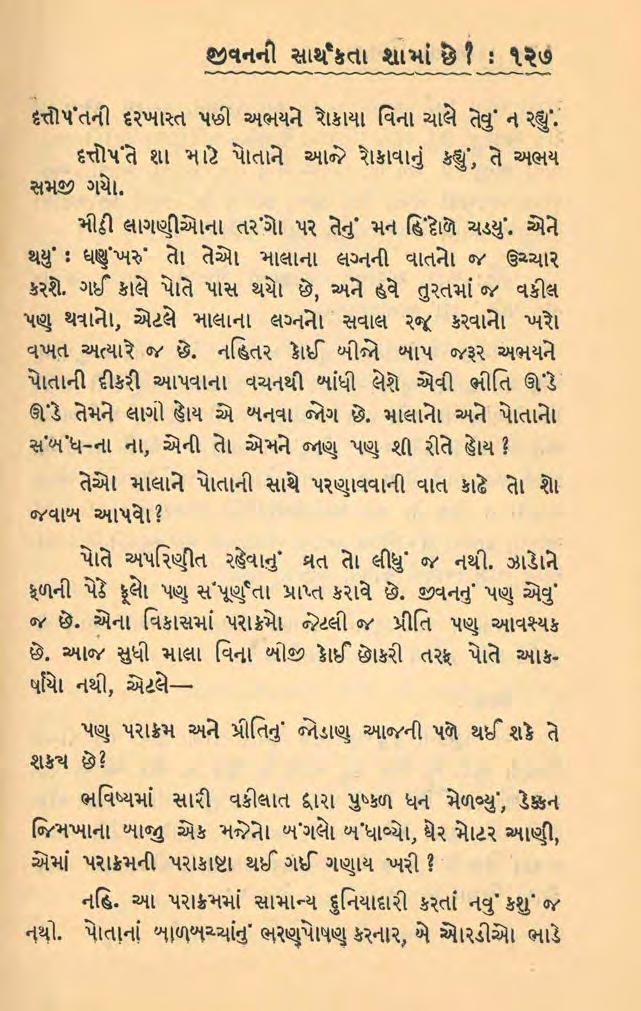 જીવનની સાર્થકતા શામાં છે? : ૧૨૭
દત્તોપંતની દરખાસ્ત પછી અભયને રોકાયા વિના ચાલે તેવું ન રહ્યું.
દત્તોપંતે શા માટે પોતાને આજે રોકાવાનું કહ્યું, તે અભય
સમજી ગયો.
મીઠી લાગણીઓના તરંગો પર તેનું મન હિંદોળે ચડયું. એને
થયું : ઘણુંખરું તો તેઓ માલાના લગ્નની વાતનો જ ઉચ્ચાર
કરશે. ગઈ કાલે પોતે પાસ થયો છે, અને હવે તુરતમાં જ વકીલ
પણ થવાનો, એટલે માલાના લગ્નનો સવાલ રજૂ કરવાનો ખરો
વખત અત્યારે જ છે. નહિતર કોઈ બીજો બાપ જરૂર અભયને
પોતાની દીકરી આપવાના વચનથી બાંધી લેશે એવી ભીતિ ઊંડે
ઊંડે તેમને લાગી હોય એ બનવા જોગ છે. માલાનો અને પોતાનો
સંબંધ-ના ના, એની તો એમને જાણ પણ શી રીતે હોય?
તેઓ માલાને પોતાની સાથે પરણાવવાની વાત કાઢે તો શો
જવાબ આપવો?
પોતે અપરિણીત રહેવાનું વ્રત તો લીધું જ નથી. ઝાડોને
ફળની પેઠે ફૂલો પણ સંપૂર્ણતા પ્રાપ્ત કરાવે છે. જીવનનું પણ એવું
જ છે. એના વિકાસમાં પરાક્રમો જેટલી જ પ્રીતિ પણ આવશ્યક
છે. આજ સુધી માલા વિના બીજી કોઈ છોકરી તરફ પોતે આક-
ર્ષાયો નથી, એટલે—
પણ પરાક્રમ અને પ્રીતિનું જોડાણ આજની પળે થઈ શકે તે
શકય છે?
ભવિષ્યમાં સારી વકીલાત દ્વારા પુષ્કળ ધન મેળવ્યું, ડેક્કન
જિમખાના બાજુ એક મજેનો બંગલો બંધાવ્યો, ઘેર મોટર આણી,
એમાં પરાક્રમની પરાકાષ્ટા થઈ ગઈ ગણાય ખરી?
નહિ. આ પરાક્રમમાં સામાન્ય દુનિયાદારી કરતાં નવું કશું જ
નથી. પોતાનાં બાળબચ્ચાંનું ભરણપોષણ કરનાર, બે ઓરડીઓ ભાડે